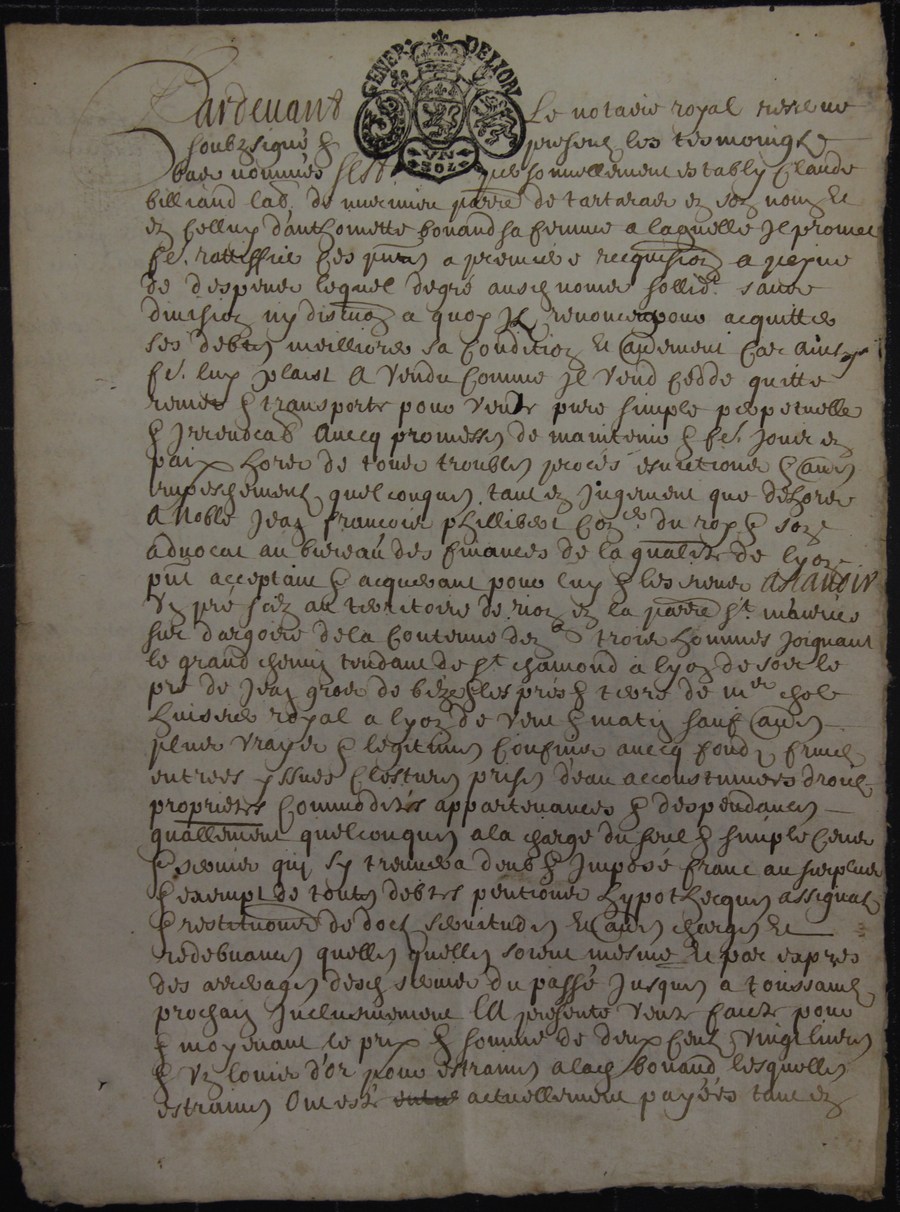 GENER. DE LYON
UN
SOL
Pardevant Le notaire royal reservé
soubzsigné & presens les tesmoings
bas nommés s'est personnellement estably Claude
billiand lab. de parre de tartaras en son nom &
en celluy d'anthoinette bonand sa femme a laquelle Il promet
fe. rattiffier ces pntes a premiere requisition a peyne
de despens lequel degré sollid. sans
division ny discution a quoy Il renonce pour acquitter
ses debtes meilliorer sa condition & autrement car ainsy
fe. luy plaist A vendu comme Il vend cedde quitte
remet & transporte pour vente pure simple perpetuelle
& Irrevocab. Avecq promesses de maintenir & fe. jouir en
paix hors de tous troubles procés evictions & autres
empeschements quelconques tant en Jugement que dehors
A Noble Jean francois phillibert con.er du roy & son
advocat au bureau des finances de la generalité de lyon
pnt acceptant & acquerant pour luy & les siens Ascavoir
Un pré scizt au territoire de rion en la parre St. maurice
sur dargoire de la contenue d'en.on trois hommes joignant
le grand chemin tendant de St. chamond à lyon de soir le
pré de Jean gros de bize & les prés & terre de m.re
huissier royal a lyon de vent & matin sauf autres
plus vrayes & legitimes confins avecq fondz fruictz
entrées yssues clostures prises d'eau accoustumées droictz
proprietés commodités appartenances & despendances
quelconques a la charge du seul & simple cens
& servis qui s'y treuvera deub & Imposé franc au surplus
& exempt de toutes debtes pentions hypothecques assignatz
& restitutions de dots servitudes & autres charges &
redebvances quelles quelles soient mesme & par exprès
des arrerages desd. servis du passé jusques a toussainctz
prochain Inclusivement LA presente vente faicte pour
& moyenant le prix & somme de deux cent vingt livres
& un louis d'or pour estraines a lad. bonand lesquelles
estraines Ont esté actuellement payées tant en